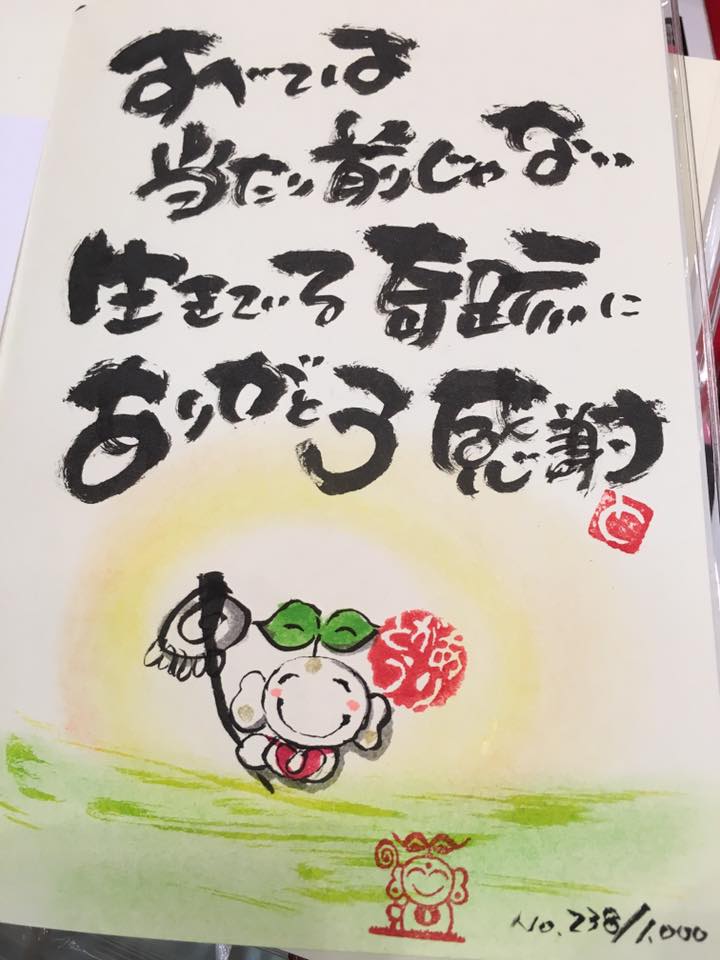 すべては
当たり前じゃない
生きている奇跡に
ありがとう感謝
と
ありがとう
No. 238/1,000